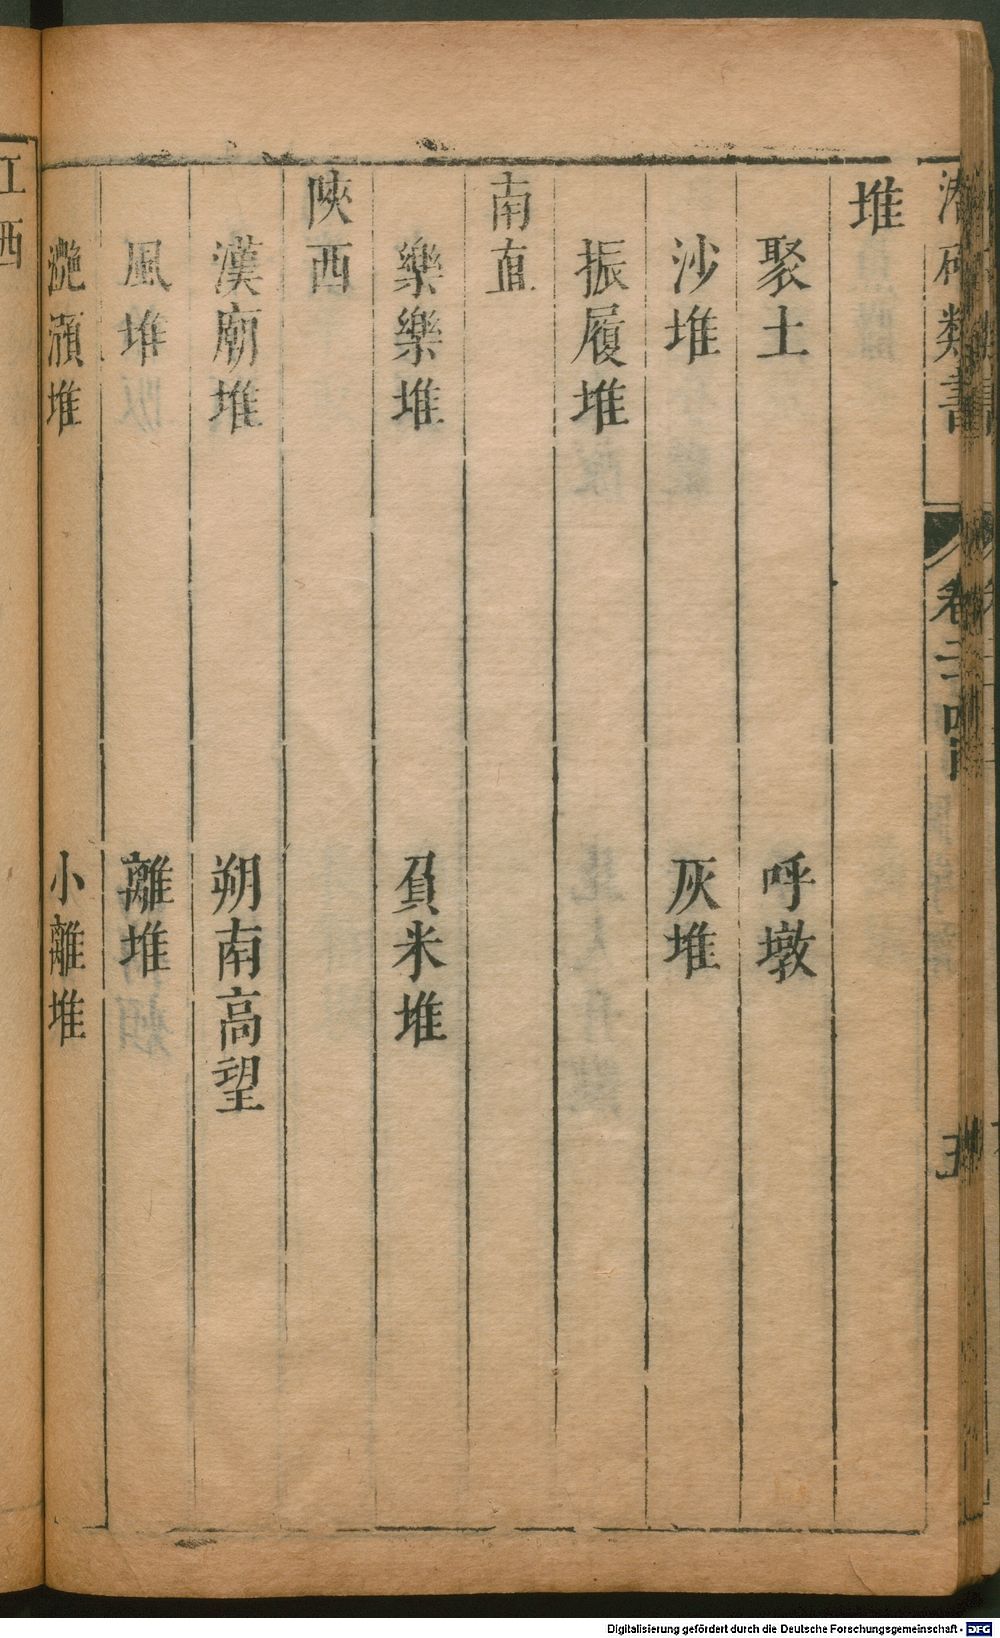 潛確類書 卷二十四
堆
聚土 呼墩
沙堆 灰堆
振履堆
南直
樂樂堆 負米堆
陝西
漢廟堆 朔南高望
風堆 離堆
灧澦堆 小離堆
江西
Digitalisierung gefördert durch die Deutsche Forschungsgemeinschaft - DFG